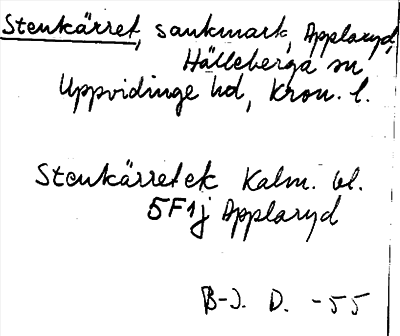 Stenkärret, sankmark, Applaryd,
Hälleberga sn
Uppvidinge hd, Kron. l.
Stenkärret ek Kalm. bl.
5F1j Applaryd
B-J. D. -55